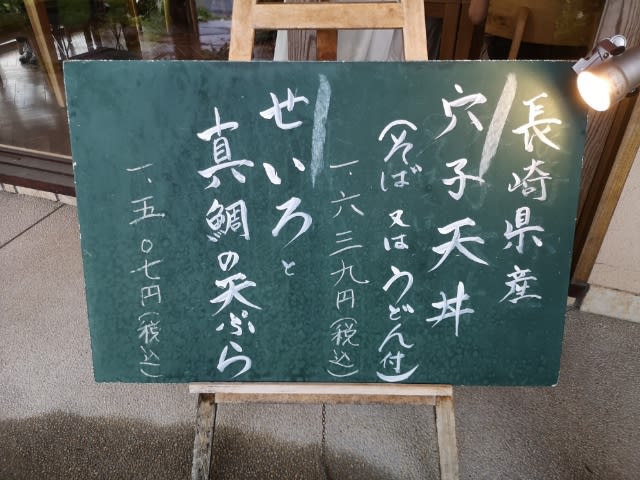 長崎県産
穴子天丼
(そば又はうどん付)
一、六三九円(税込)
せいろと
真鯛の天ぷら
一、五〇七円(税込)